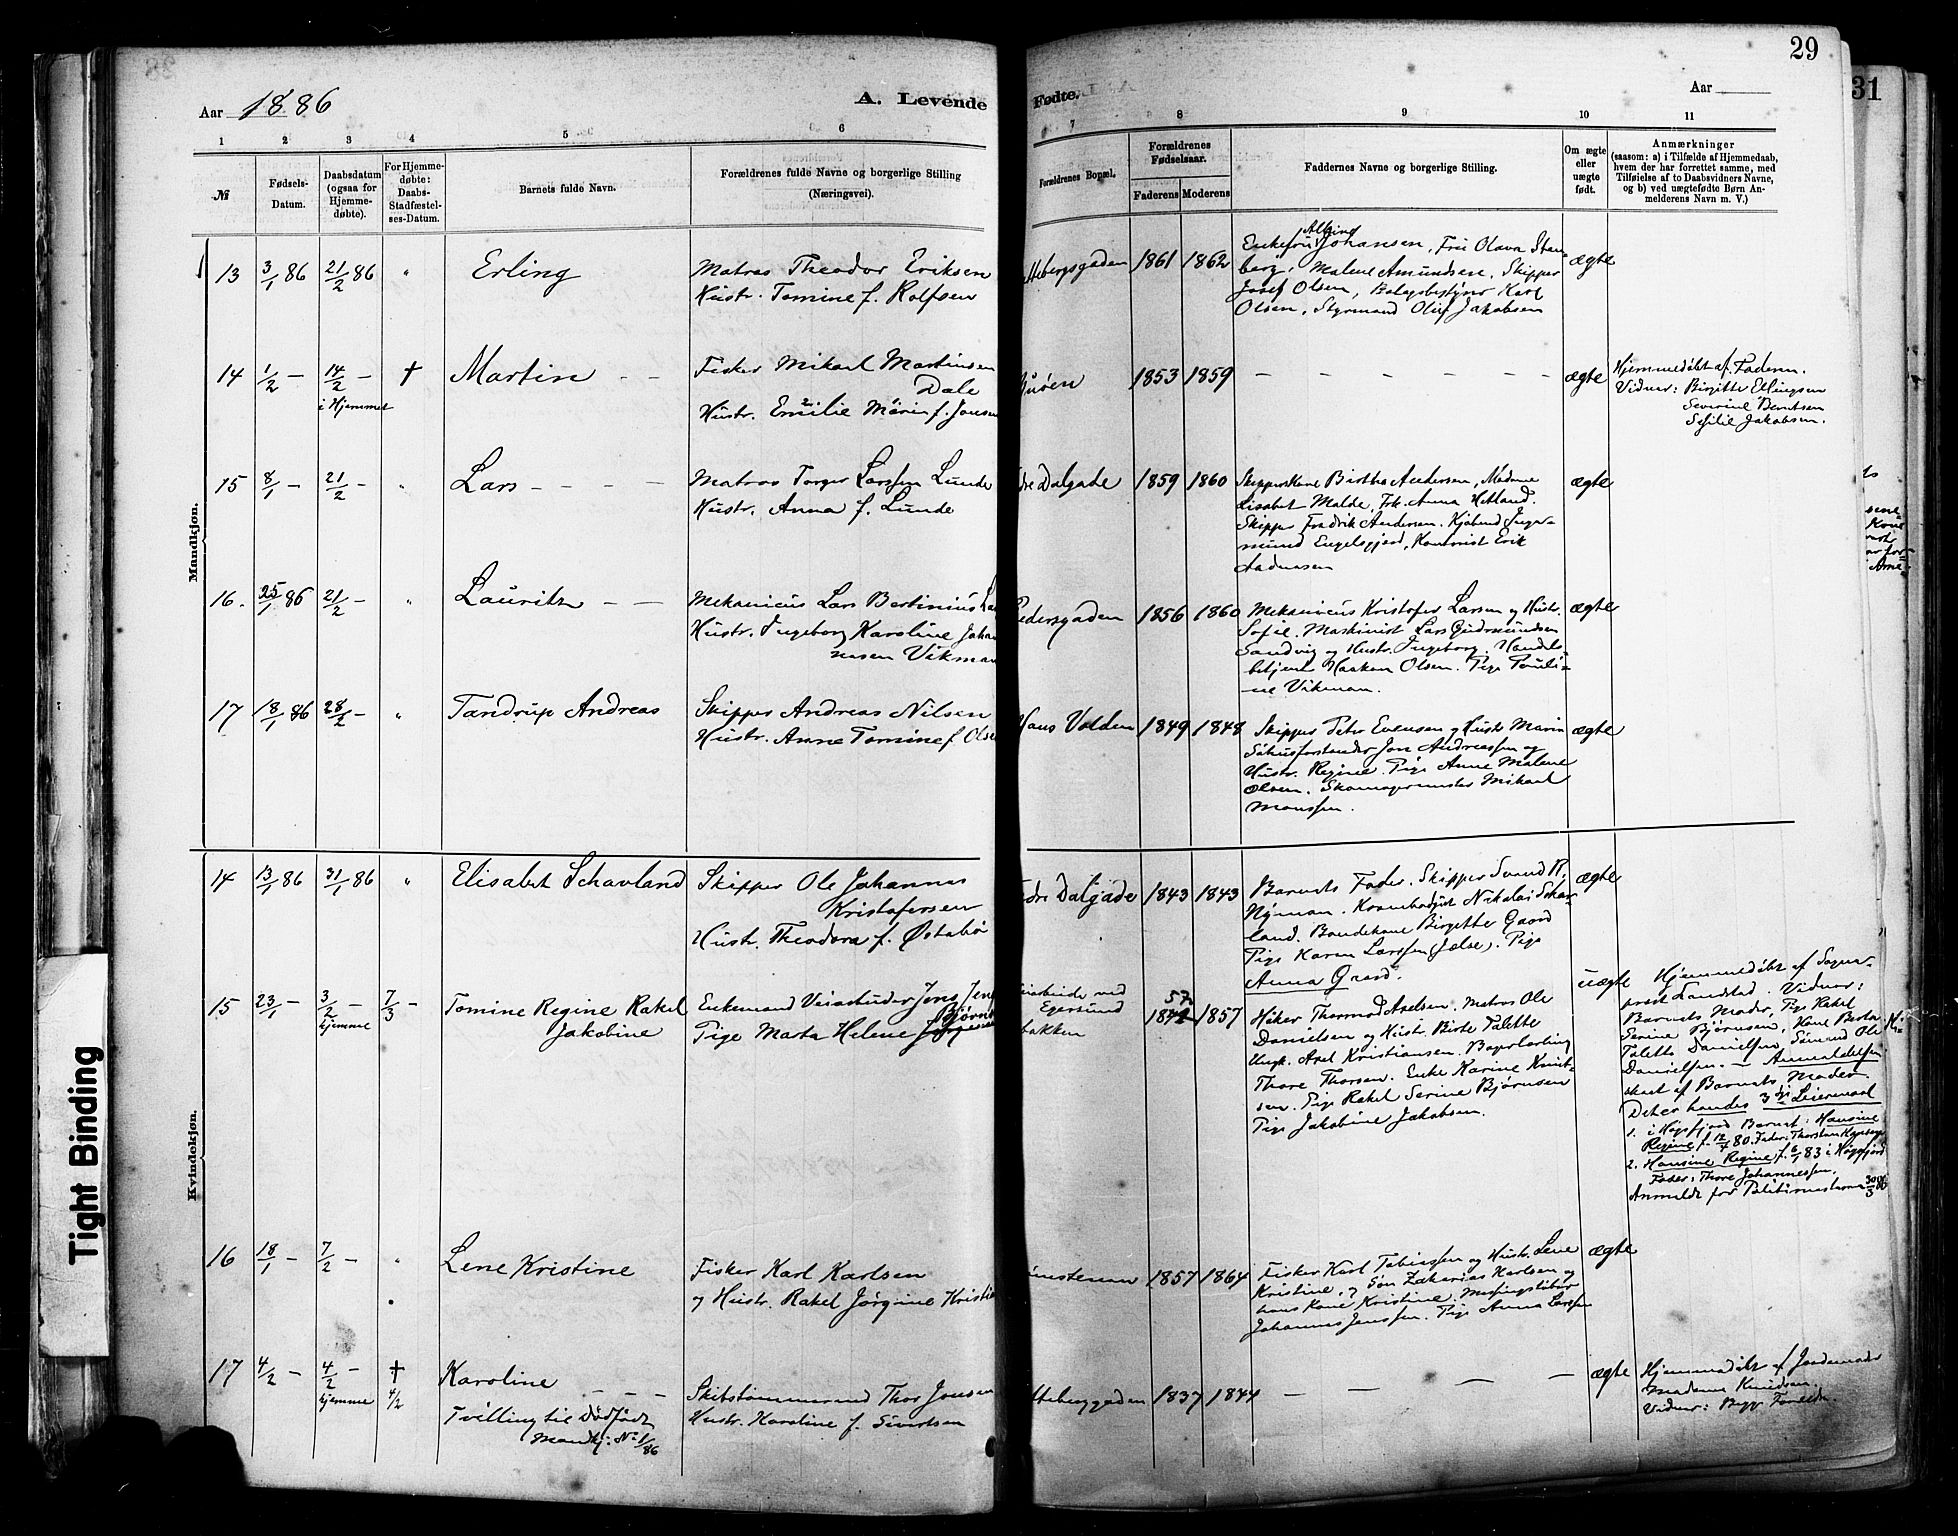 29
31
Aar 1886
A. Levende
Fødte.
Aar
1 2 3 4 5 6 7 8 9 10 11
№
Fødsels-Datum.
Daabsdatum (ogsaa for Hjemme-døbte).
For Hjemme-døbte: Daabs-Stadfæstel-ses-Datum.
Barnets fulde Navn.
Forældrenes fulde Navne og borgerlige Stilling (Næringsvei).
Forældrenes Bopæl.
Forældrenes Fødselsaar.
Faderens Moderens
Faddernes Navne og borgerlige Stilling.
Om ægte eller uægte født.
Anmærkninger
(saasom: a) i Tilfælde af Hjemmedaab,
hvem der har forrettet samme, med
Tilføielse af to Daabsvidners Navne,
og b) ved uægtefødte Børn An-
melderens Navn m. V.)
Mandkjøn.
13 3/1 86 21/2 86 " Erling
Matros Theodor Eriksen
Hustr. Tomine f. Rolfsen
1861 1862
Enkefru Johansen, Fru Olava Sten-
berg, Malene Amundsen, Skipper
Josef Olsen, Karl
Olsen, Styrmand Oluf Jakobsen
ægte
14 1/2 — 14/2 — i Hjemmet † Martin — —
Fisker Mikael Martinsen
Dale
Hustr. Emilie f. Jonsen
1853 1859
— — — — — — —
ægte
Hjemmedøbt af Faderen.
Vidner: Birgitte Ellingsen
Severine Berntsen
Sesilie Jakobsen.
15 8/1 — 21/2 — " Lars — — — —
Matros Torger Larssen Lunde
Hustr. Anna f. Lunde
dre Dalgade 1859 1860
Birtha Andersen, Madame
Lisabet Malde, Frk. Anna Hetland.
Skipper Fredrik Andersen. Kjøbmd Inge-
mund Engelsgjerd, Kontorist Erik
Aadnesen
ægte
16. 25/1 86 21/2 — " Lauritz — —
Mekanicus Lars Bertinius
Hustr. Ingeborg Karoline Johan
nesen Vikman
edersgaden 1856 1860
Mekanicus Kristofer Larsen og Hustr.
Sofie. Maskinist Lars Gudmundsen
Sandvig og Hustr. Ingeborg. Handels-
betjent Haaken Olsen. Pige Pauli-
ne Vikman.
ægte
17 18/1 86 28/2 — " Tandrup Andreas
Skipper Andreas Nilsen
Hustr. Anne Tomine f. Olse
1849 1848
Skipper Peter Evensen og Hustr. Marin
Jon Andreassen og
Hustr. Regine. Pige Anne Malene
Olsen. Skomagermester Mikael
Monssen.
ægte
Kvindekjøn.
14 13/1 86 31/1 86 " Elisabet Schavland
Skipper Ole Johannas
Kristofersen
Hustr. Theodora f. Østabø
dre Dalgade 1843 1843
Barnets Fader. Skipper Svend R.
Nyman. Nikolai Schav-
land. Bondekone Birgette Gaard
Pige Karen Larssen (Jelse). Pige
Anna Gaard.
ægte
15 23/1 — 3/2 — hjemme 7/3 — Tomine Regine Rakel
Jakobine
Enkemand Jens Jen
Pige Marta Helene
arbeide ved
Egersund
bakken
57 1857
Høker Thormod Axelsen. Matros Ole
Danielsen og Hustr. Birte Talette
Ungk. Axel Kristiansen.
Thore Thorsen. Enke Karine Knut-
sen. Pige Rakel Serine Bjørnsen
Pige Jakobine Jakobsen.
uægte
Hjemmedøbt af Sogne-
præst Landstad. Vidner:
Barnets Moder, Pige Rakel
Serine Bjørnsen, Kone Berta
Talette Danielsen, Sømand Ole
Danielsen. — Anmeldelsen
skeet af Barnets Moder.
Det er hendes 3die Leiermaal
1. i Høgsfjord Barnet: Hansine
Regine f. 12/4 80. Fader: Thorsten
2. Hansine Regine, f. 6/1 83 i Høgsfjord
Fader: Thore Johannessen.
Anmeldt for Politimesteren 30/3 86
16 18/1 — 7/2 — " Lene Kristine
Fisker Karl Karlsen
og Hustr. Rakel Jørgine Kristi
1857 1864
Fisker Karl Tobiassen og Hustr. Lene
Kristine, og Søn Zakarias Karlsen og
hans Kone Kristine. Messingstøber
Johannes Jenssen. Pige Anna Larsen
ægte
17 4/2 — 4/2 — hjemme † 4/2 Karoline — — —
Tvilling til Dødfødt
Mandkj: No 1/86
Skibstømmermand Thor Jonsen
Hustr. Karoline f. Sivertsen
ttebergsgaden 1837 1844
— — — —
ægte
Hjemmedøbt af Jordemoder
Madame Knudsen.
Vidner: Begge Foreldre.
Tight Binding